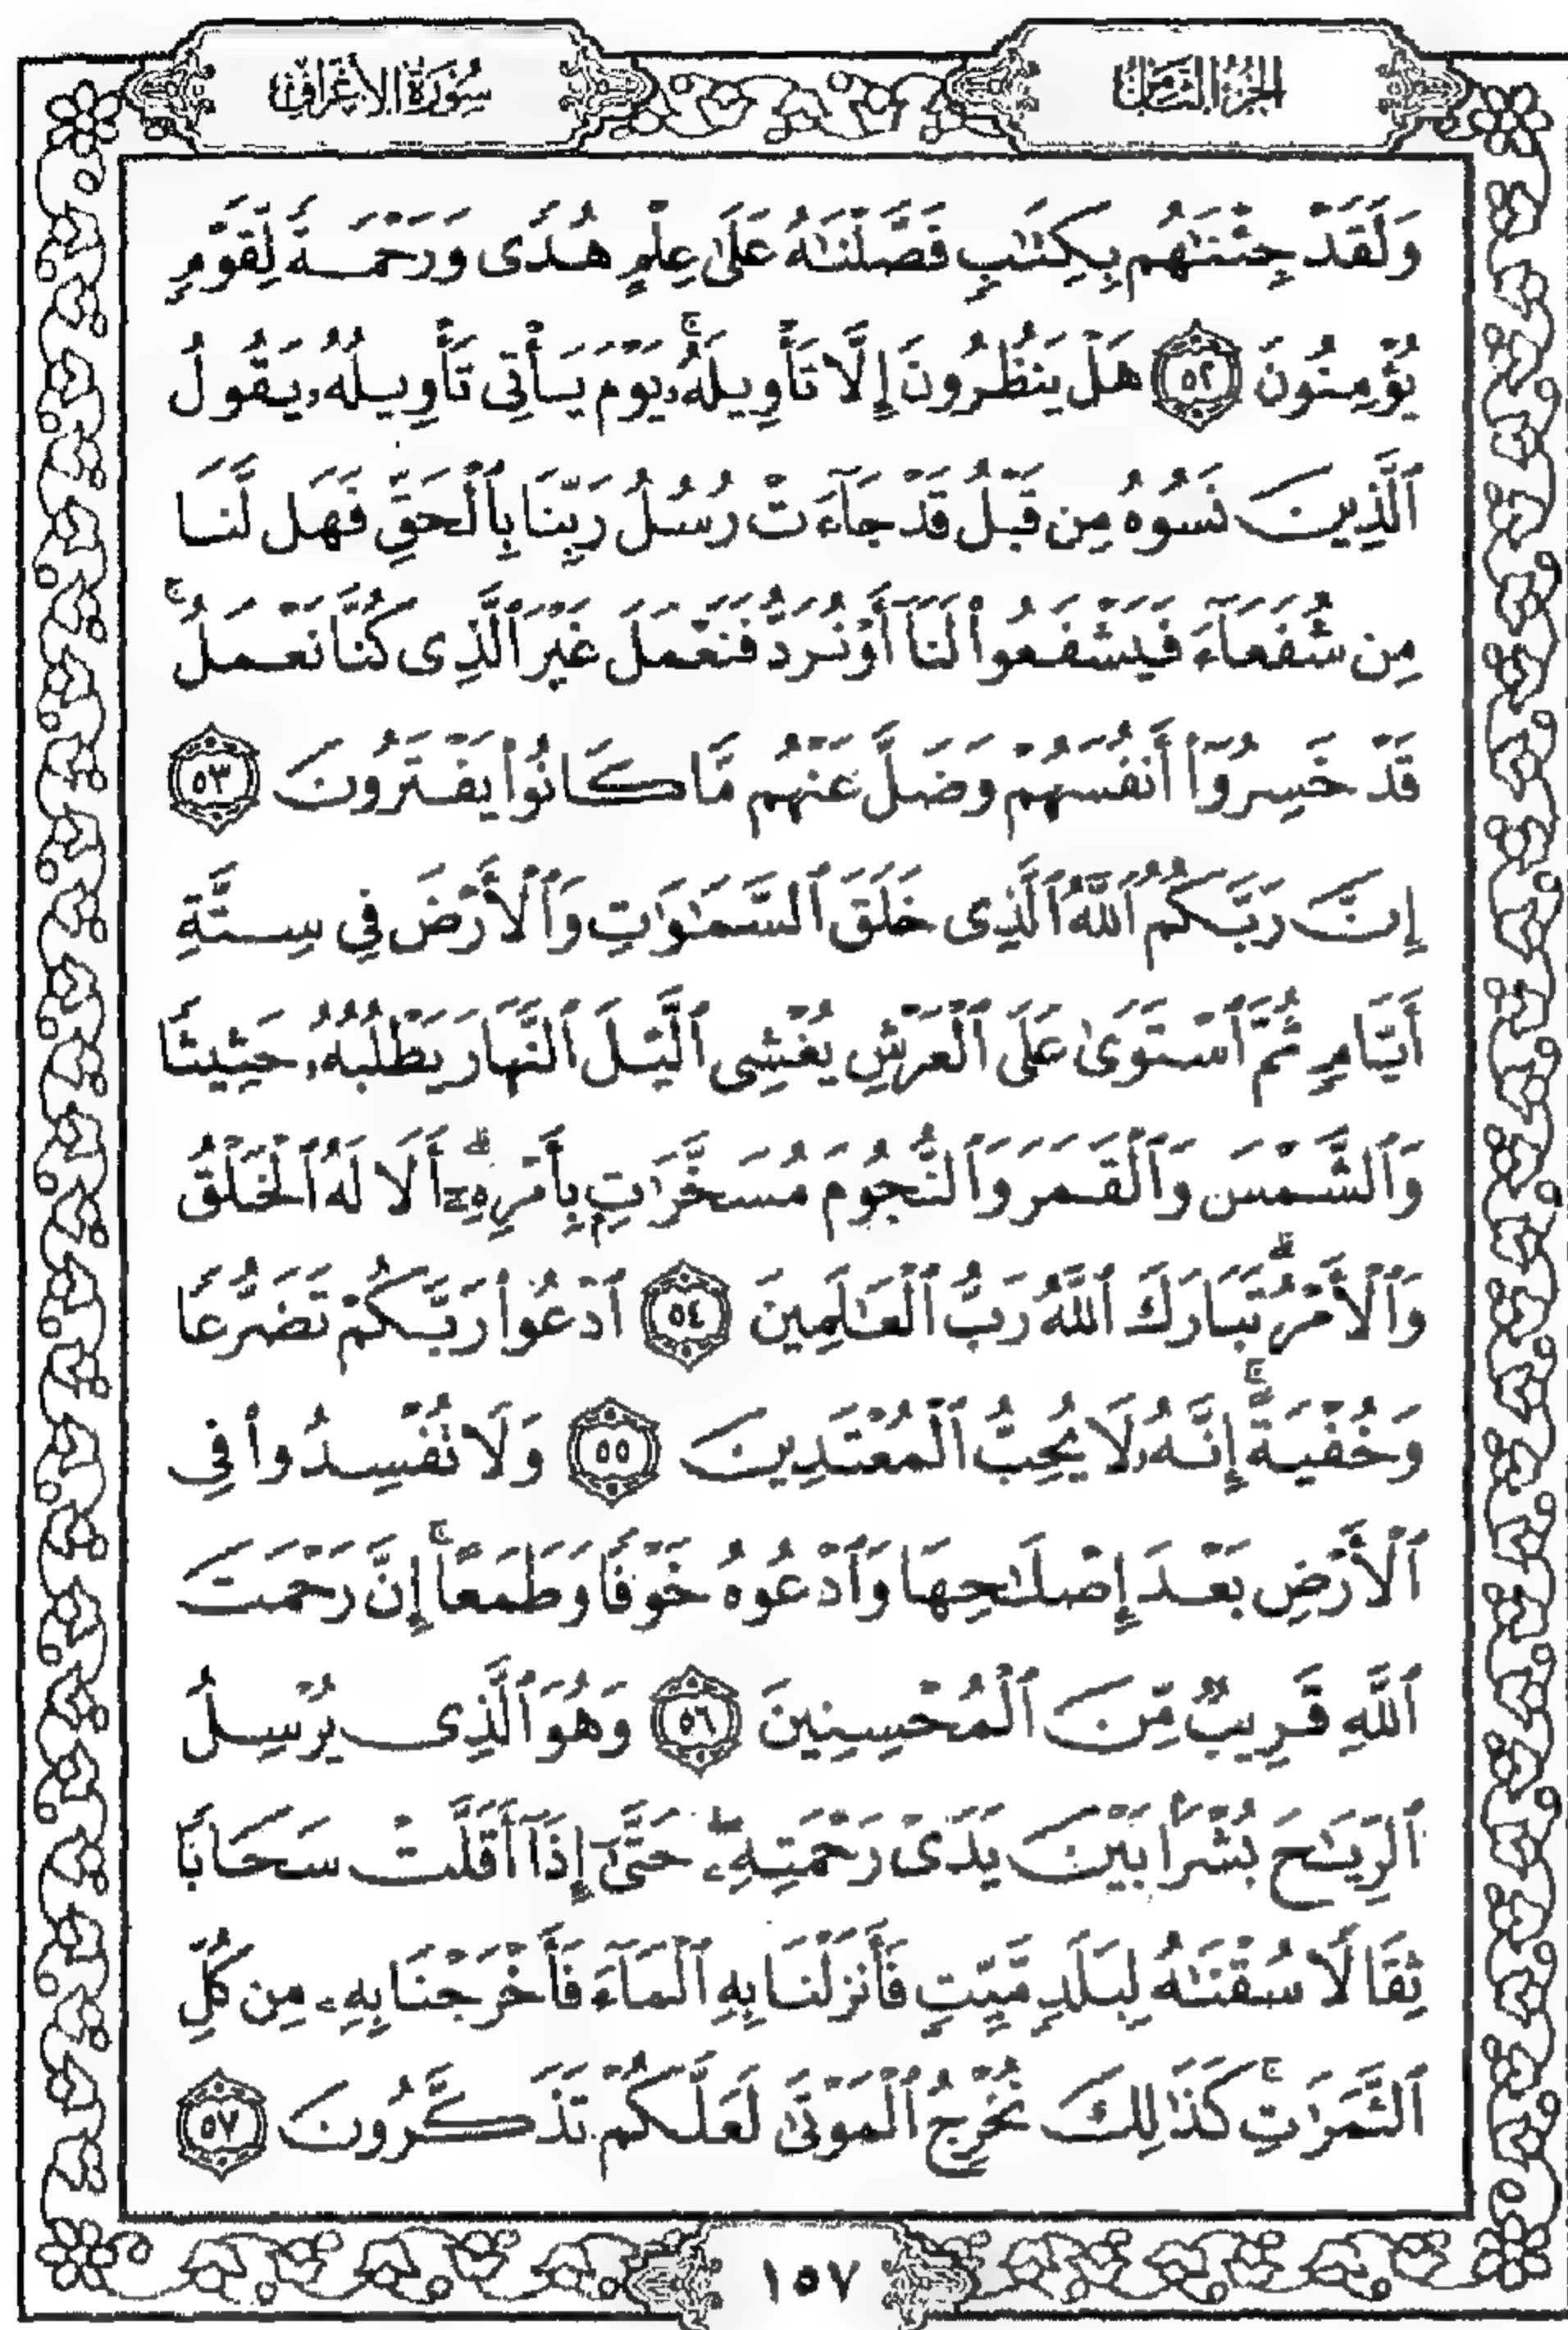 الجزء الثامن
سورة الأعراف
وَلَقَدْ جِئْنَٰهُم بِكِتَٰبٍ فَصَّلْنَٰهُ عَلَىٰ عِلْمٍ هُدًى وَرَحْمَةً لِّقَوْمٍ
يُؤْمِنُونَ ٥٢ هَلْ يَنظُرُونَ إِلَّا تَأْوِيلَهُۥۚ يَوْمَ يَأْتِى تَأْوِيلُهُۥ يَقُولُ
ٱلَّذِينَ نَسُوهُ مِن قَبْلُ قَدْ جَآءَتْ رُسُلُ رَبِّنَا بِٱلْحَقِّ فَهَل لَّنَا
مِن شُفَعَآءَ فَيَشْفَعُوا۟ لَنَآ أَوْ نُرَدُّ فَنَعْمَلَ غَيْرَ ٱلَّذِى كُنَّا نَعْمَلُۚ
قَدْ خَسِرُوٓا۟ أَنفُسَهُمْ وَضَلَّ عَنْهُم مَّا كَانُوا۟ يَفْتَرُونَ ٥٣
إِنَّ رَبَّكُمُ ٱللَّهُ ٱلَّذِى خَلَقَ ٱلسَّمَٰوَٰتِ وَٱلْأَرْضَ فِى سِتَّةِ
أَيَّامٍ ثُمَّ ٱسْتَوَىٰ عَلَى ٱلْعَرْشِ يُغْشِى ٱلَّيْلَ ٱلنَّهَارَ يَطْلُبُهُۥ حَثِيثًا
وَٱلشَّمْسَ وَٱلْقَمَرَ وَٱلنُّجُومَ مُسَخَّرَٰتٍۭ بِأَمْرِهِۦٓۗ أَلَا لَهُ ٱلْخَلْقُ
وَٱلْأَمْرُۗ تَبَارَكَ ٱللَّهُ رَبُّ ٱلْعَٰلَمِينَ ٥٤ ٱدْعُوا۟ رَبَّكُمْ تَضَرُّعًا
وَخُفْيَةًۚ إِنَّهُۥ لَا يُحِبُّ ٱلْمُعْتَدِينَ ٥٥ وَلَا تُفْسِدُوا۟ فِى
ٱلْأَرْضِ بَعْدَ إِصْلَٰحِهَا وَٱدْعُوهُ خَوْفًا وَطَمَعًاۚ إِنَّ رَحْمَتَ
ٱللَّهِ قَرِيبٌ مِّنَ ٱلْمُحْسِنِينَ ٥٦ وَهُوَ ٱلَّذِى يُرْسِلُ
ٱلرِّيَٰحَ بُشْرًۢا بَيْنَ يَدَىْ رَحْمَتِهِۦۖ حَتَّىٰٓ إِذَآ أَقَلَّتْ سَحَابًا
ثِقَالًا سُقْنَٰهُ لِبَلَدٍ مَّيِّتٍ فَأَنزَلْنَا بِهِ ٱلْمَآءَ فَأَخْرَجْنَا بِهِۦ مِن كُلِّ
ٱلثَّمَرَٰتِۚ كَذَٰلِكَ نُخْرِجُ ٱلْمَوْتَىٰ لَعَلَّكُمْ تَذَكَّرُونَ ٥٧
١٥٧